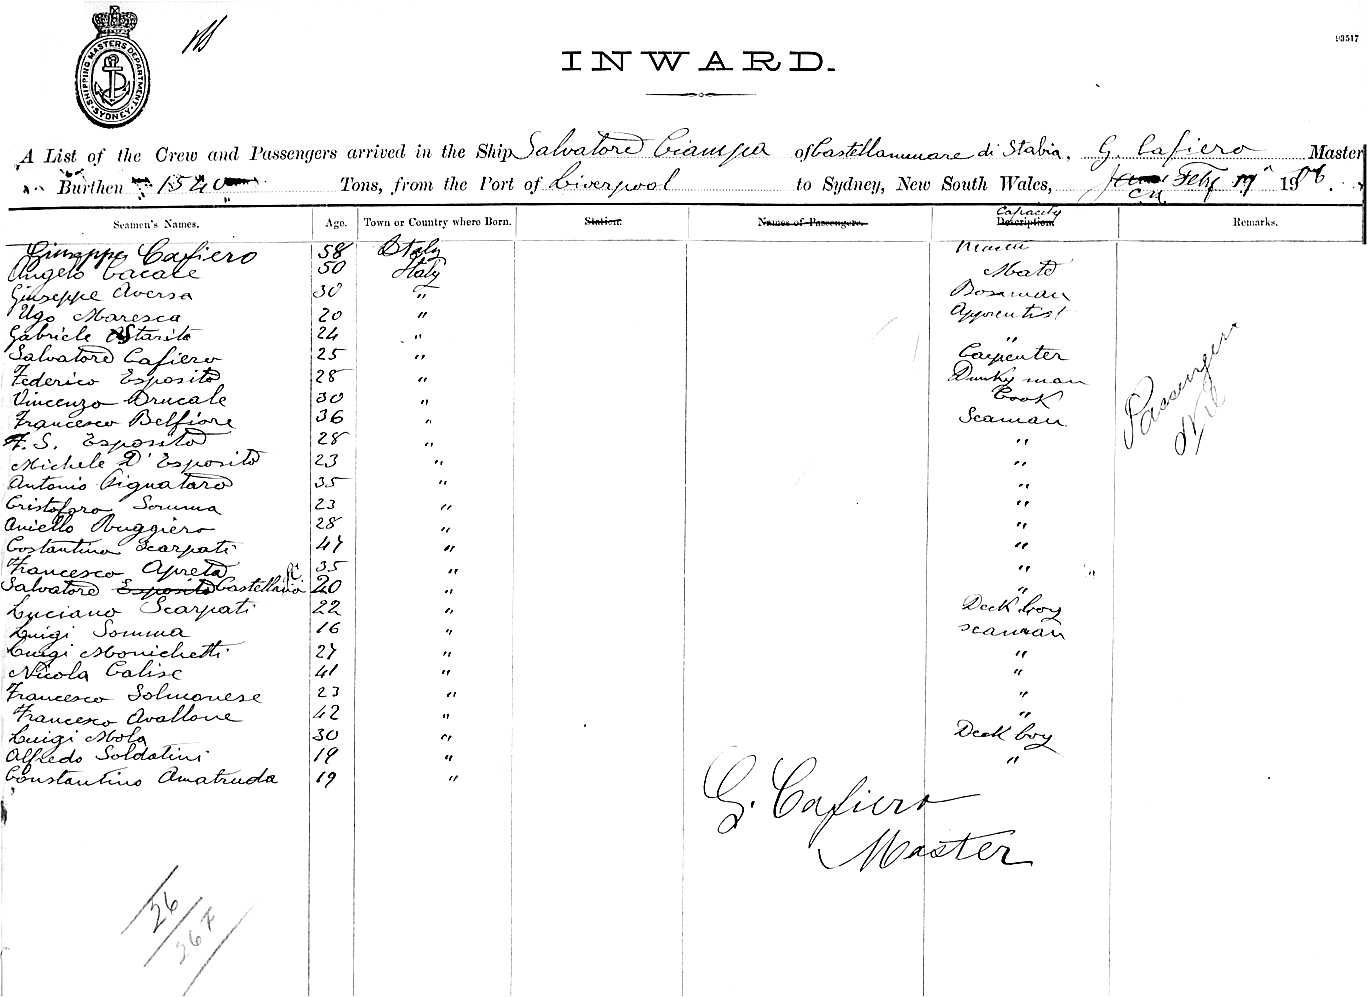 SHIPPING MASTERS DEPARTMENT
SYDNEY
93517
INWARD.
A List of the Crew and Passengers arrived in the Ship Salvatore Ciampa of Castellammare di Stabia, G. Cafiero Master
Burthen 1520 Tons, from the Port of Liverpool to Sydney, New South Wales, Feby 17 1906.
Seamen's Names. Age. Town or Country where Born. Station. Names of Passengers. Capacity Description Remarks.
Giuseppe Cafiero 58 Italy Master
Angelo Cacace 50 Italy Mate
Giuseppe Aversa 30 " Bosman
Ugo Maresca 20 " Apprentist
Gabriele Astarito 24 " "
Salvatore Cafiero 25 " Carpenter
Federico Esposito 28 " Dunky man
Vincenzo Drucale 30 " Cook
Francesco Belfiore 36 " Seaman
F. S. Esposito 28 " "
Michele D'Esposito 23 " "
Antonio Pignataro 35 " "
Cristoforo Somma 23 " "
Aniello Ruggiero 28 " "
Costantino Scarpati 47 " "
Francesco Apreta 35 " "
Salvatore Esposito Castellano 20 " "
Luciano Scarpati 22 " Deck boy
Luigi Somma 16 " Seaman
Luigi Monichetti 27 " "
Nicola Calise 41 " "
Francesco Solmonese 23 " "
Francesco Avallone 42 " "
Luigi Mola 30 " Deck boy
Alfredo Soldatini 19 " "
Constantino Amatruda 19 "
Passengers
Nil
G. Cafiero
Master
26
26 F